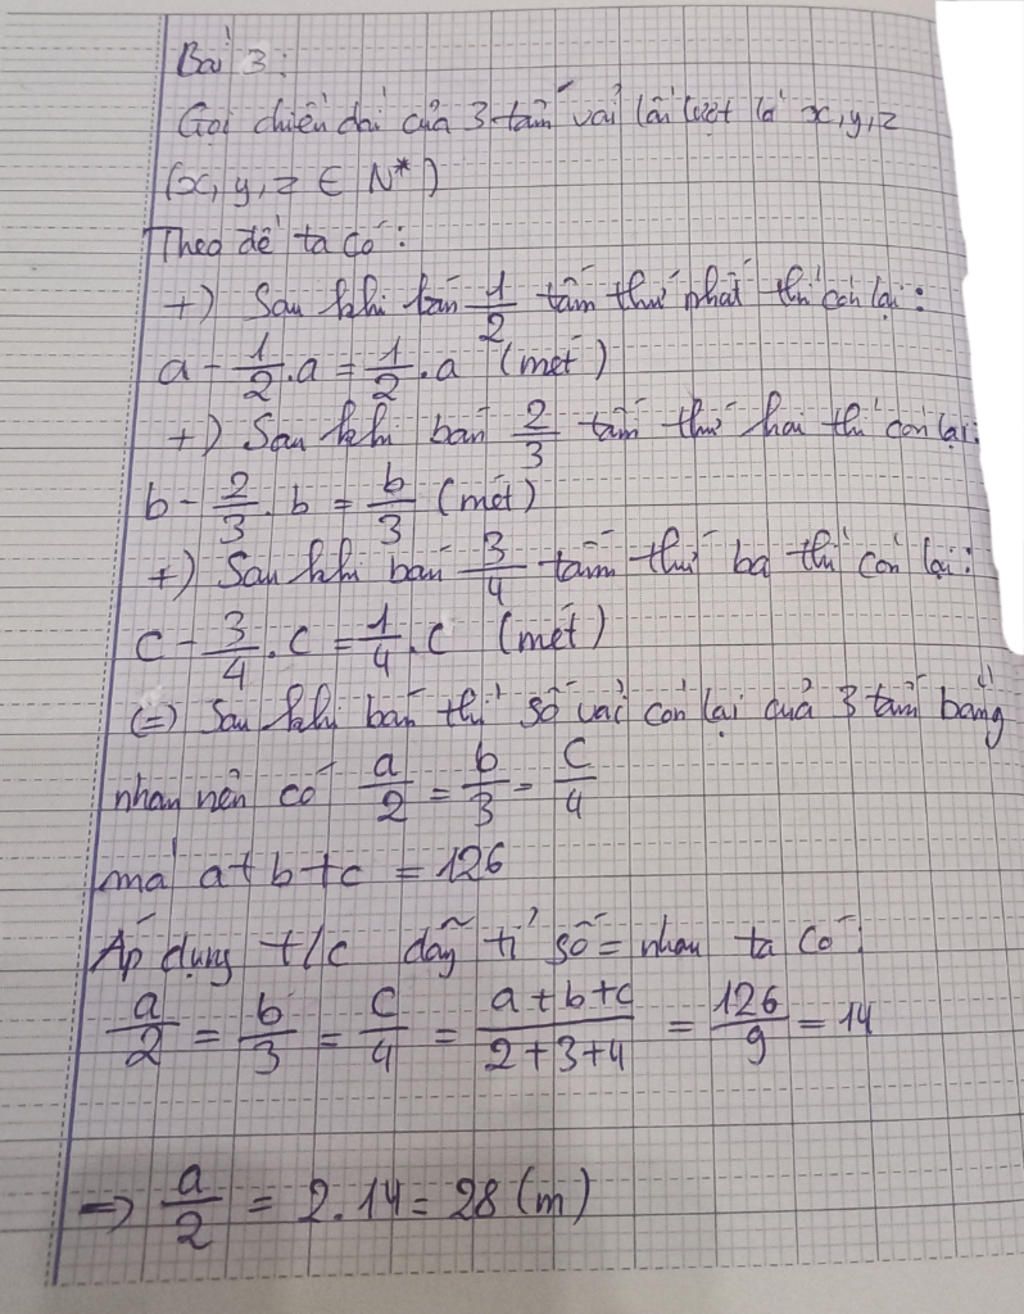 Bài 3:
Gọi chiều dài của 3 tấm vải lần lượt là x,y,z
(x, y, z ∈ N*)
Theo đề ta có:
+) Sau khi bán 1/2 tấm thứ nhất thì còn lại:
a - 1/2 . a = 1/2 . a (mét)
+) Sau khi bán 2/3 tấm thứ hai thì còn lại:
b - 2/3 . b = b/3 (mét)
+) Sau khi bán 3/4 tấm thứ ba thì còn lại:
c - 3/4 . c = 1/4 . c (mét)
(=) Sau khi bán thì số vải còn lại của 3 tấm bằng
nhau nên có a/2 = b/3 = c/4
mà a + b + c = 126
Áp dụng t/c dãy tỉ số = nhau ta có:
a/2 = b/3 = c/4 = a+b+c/2+3+4 = 126/9 = 14
=> a/2 = 2.14 = 28 (m)